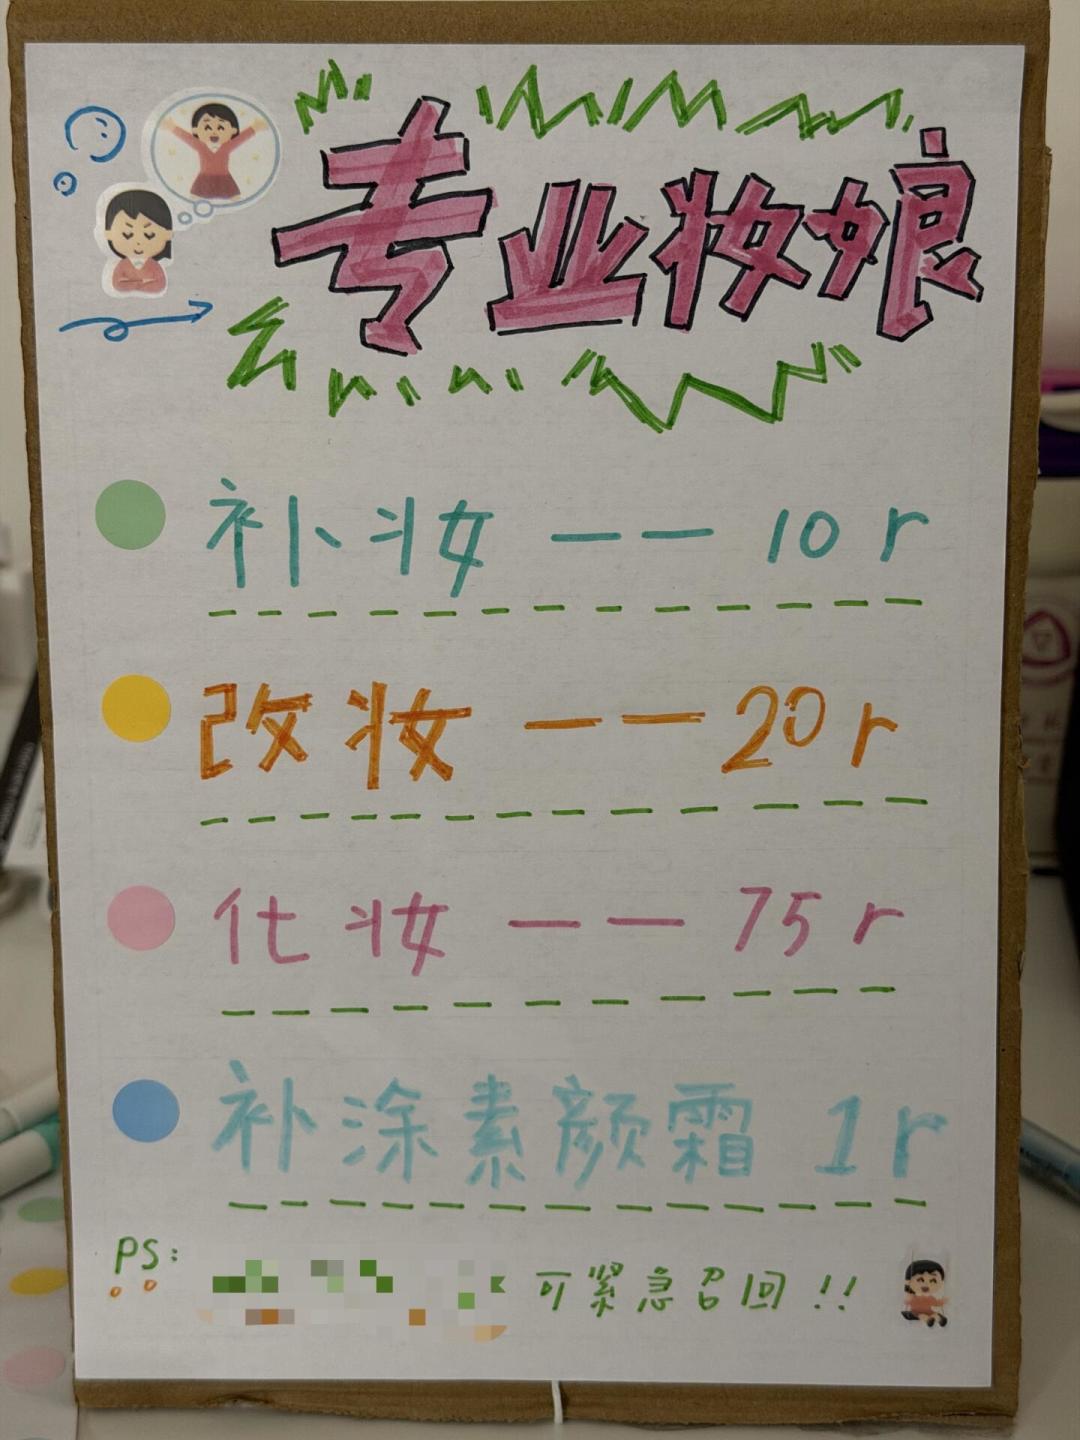 专业妆娘
补妆 —— 10r
改妆 —— 20r
化妆 —— 75r
补涂素颜霜 1r
PS: 可紧急召回!!